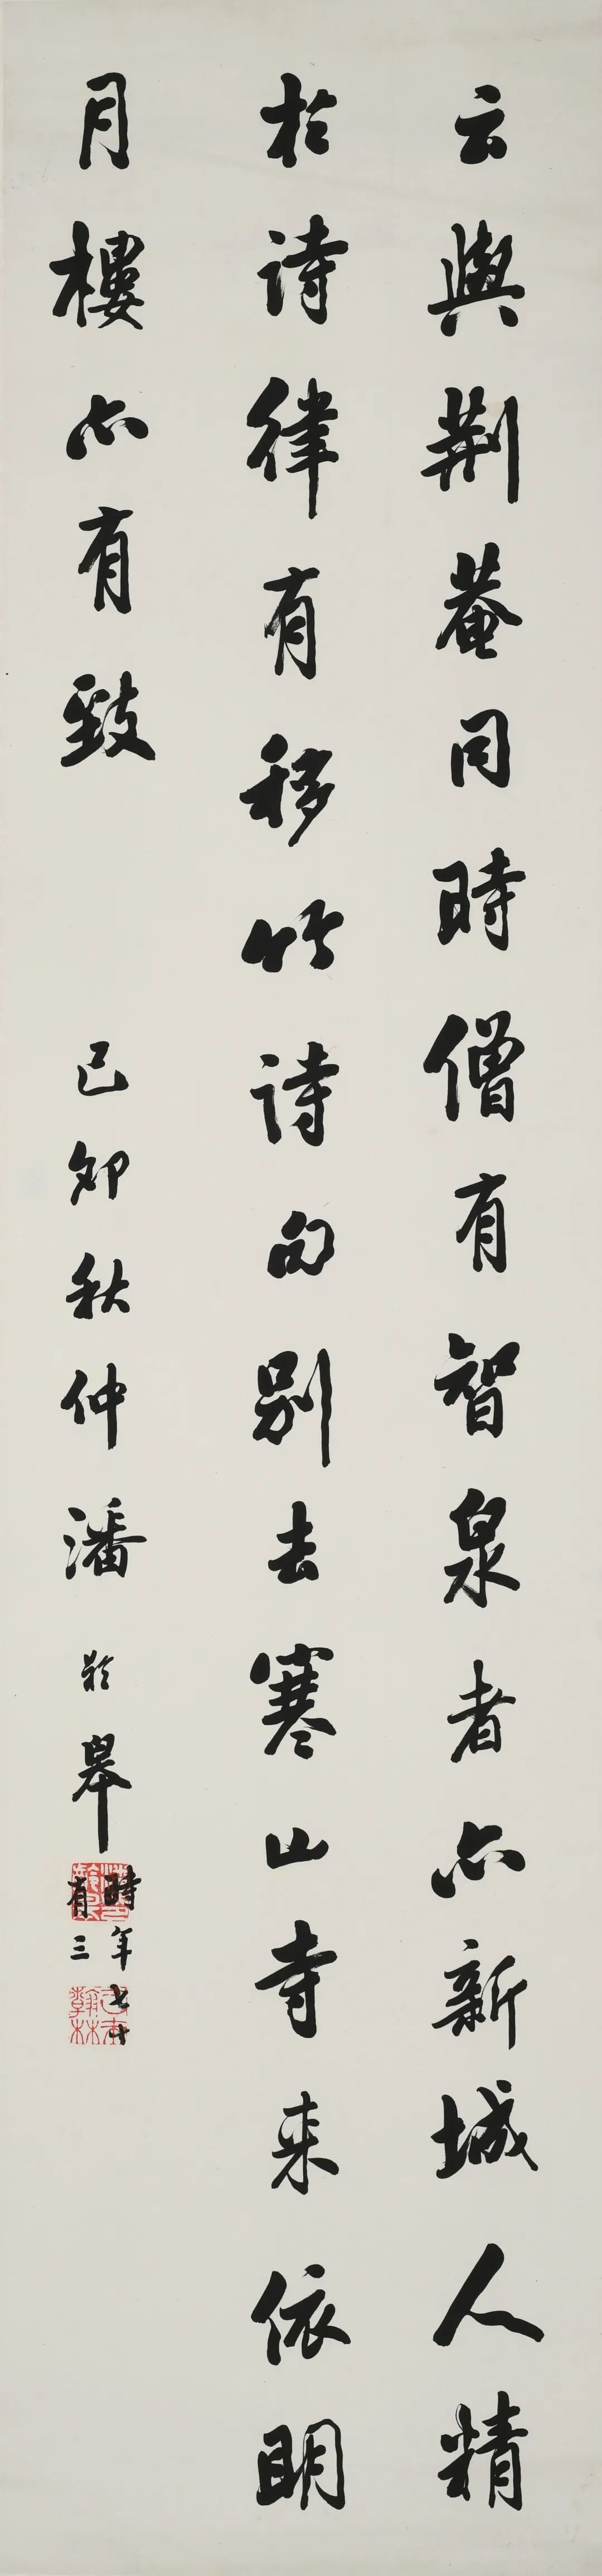 云與荆菴同時僧有智泉者亦新城人精
於詩律有移竹詩句别去寒山寺来依明
月樓亦有致
己卯秋仲潘齡皋
時年七十
有三